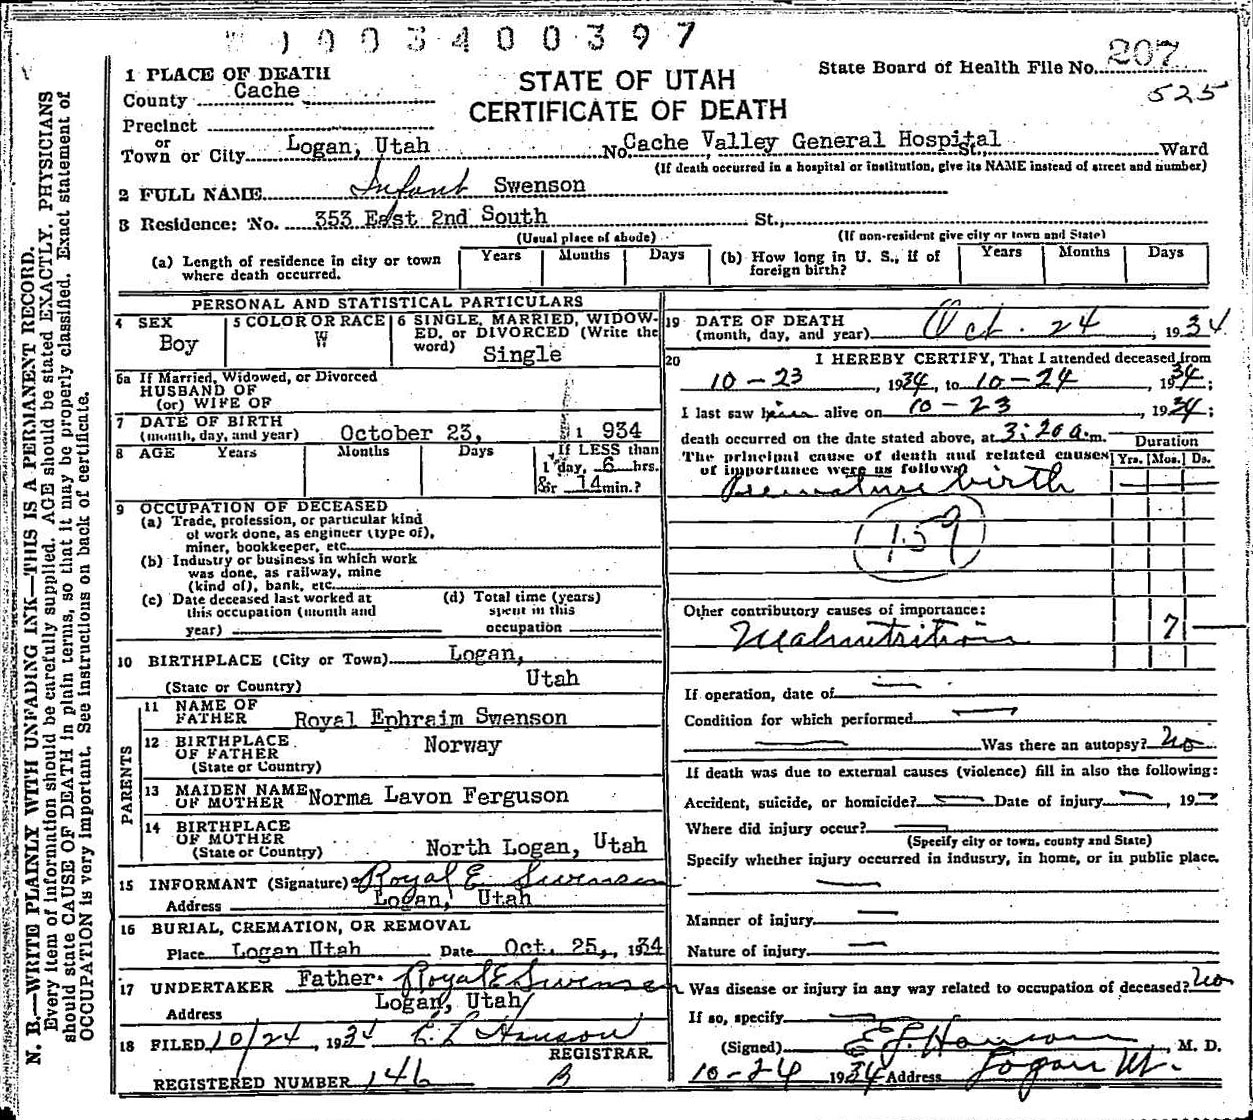 1003400397
207
State Board of Health File No.
525
STATE OF UTAH
CERTIFICATE OF DEATH
1 PLACE OF DEATH
County Cache
Precinct
or
Town or City Logan, Utah No. Cache Valley General Hospital St., Ward
(If death occurred in a hospital or institution, give its NAME instead of street and number)
2 FULL NAME Infant Swenson
3 Residence: No. 353 East 2nd South St.,
(Usual place of abode) (If non-resident give city or town and State)
(a) Length of residence in city or town where death occurred. Years Months Days
(b) How long in U. S., if of foreign birth? Years Months Days
PERSONAL AND STATISTICAL PARTICULARS
4 SEX Boy
5 COLOR OR RACE W
6 SINGLE, MARRIED, WIDOWED, or DIVORCED (Write the word) Single
6a If Married, Widowed, or Divorced
HUSBAND OF
(or) WIFE OF
7 DATE OF BIRTH
(month, day, and year) October 23, 1 934
8 AGE Years Months Days If LESS than
1 day, 6 hrs.
or 14 min.?
9 OCCUPATION OF DECEASED
(a) Trade, profession, or particular kind
of work done, as engineer (type of),
miner, bookkeeper, etc.
(b) Industry or business in which work
was done, as railway, mine
(kind of), bank, etc.
(c) Date deceased last worked at
this occupation (month and
year)
(d) Total time (years)
spent in this
occupation
10 BIRTHPLACE (City or Town) Logan,
(State or Country) Utah
PARENTS
11 NAME OF
FATHER Royal Ephraim Swenson
12 BIRTHPLACE
OF FATHER Norway
(State or Country)
13 MAIDEN NAME
OF MOTHER Norma Lavon Ferguson
14 BIRTHPLACE
OF MOTHER
(State or Country) North Logan, Utah
15 INFORMANT (Signature) Royal E Swensen
Address Logan, Utah
16 BURIAL, CREMATION, OR REMOVAL
Place Logan Utah Date Oct. 25, 1934
17 UNDERTAKER Father. Royal E Swensen
Address Logan, Utah
18 FILED 10/24, 1934 Hanson
REGISTRAR.
REGISTERED NUMBER 146 B
19 DATE OF DEATH
(month, day, and year) Oct. 24, 1934
20 I HEREBY CERTIFY, That I attended deceased from
10-23, 1934, to 10-24, 1934;
I last saw him alive on 10-23, 1934;
death occurred on the date stated above, at 3:20 a.m.
Duration
Yrs. Mos. Ds.
The principal cause of death and related causes
of importance were as follows
Premature birth
159
Other contributory causes of importance:
Malnutrition 7
If operation, date of
Condition for which performed
Was there an autopsy? No
If death was due to external causes (violence) fill in also the following:
Accident, suicide, or homicide? Date of injury, 19
Where did injury occur?
(Specify city or town, county and State)
Specify whether injury occurred in industry, in home, or in public place.
Manner of injury
Nature of injury
Was disease or injury in any way related to occupation of deceased? No
If so, specify
(Signed) Hanson, M. D.
10-24 1934 Address Logan Ut.
N. B.—WRITE PLAINLY WITH UNFADING INK—THIS IS A PERMANENT RECORD.
Every item of information should be carefully supplied. AGE should be stated EXACTLY. PHYSICIANS
should state CAUSE OF DEATH in plain terms, so that it may be properly classified. Exact statement of
OCCUPATION is very important. See instructions on back of certificate.